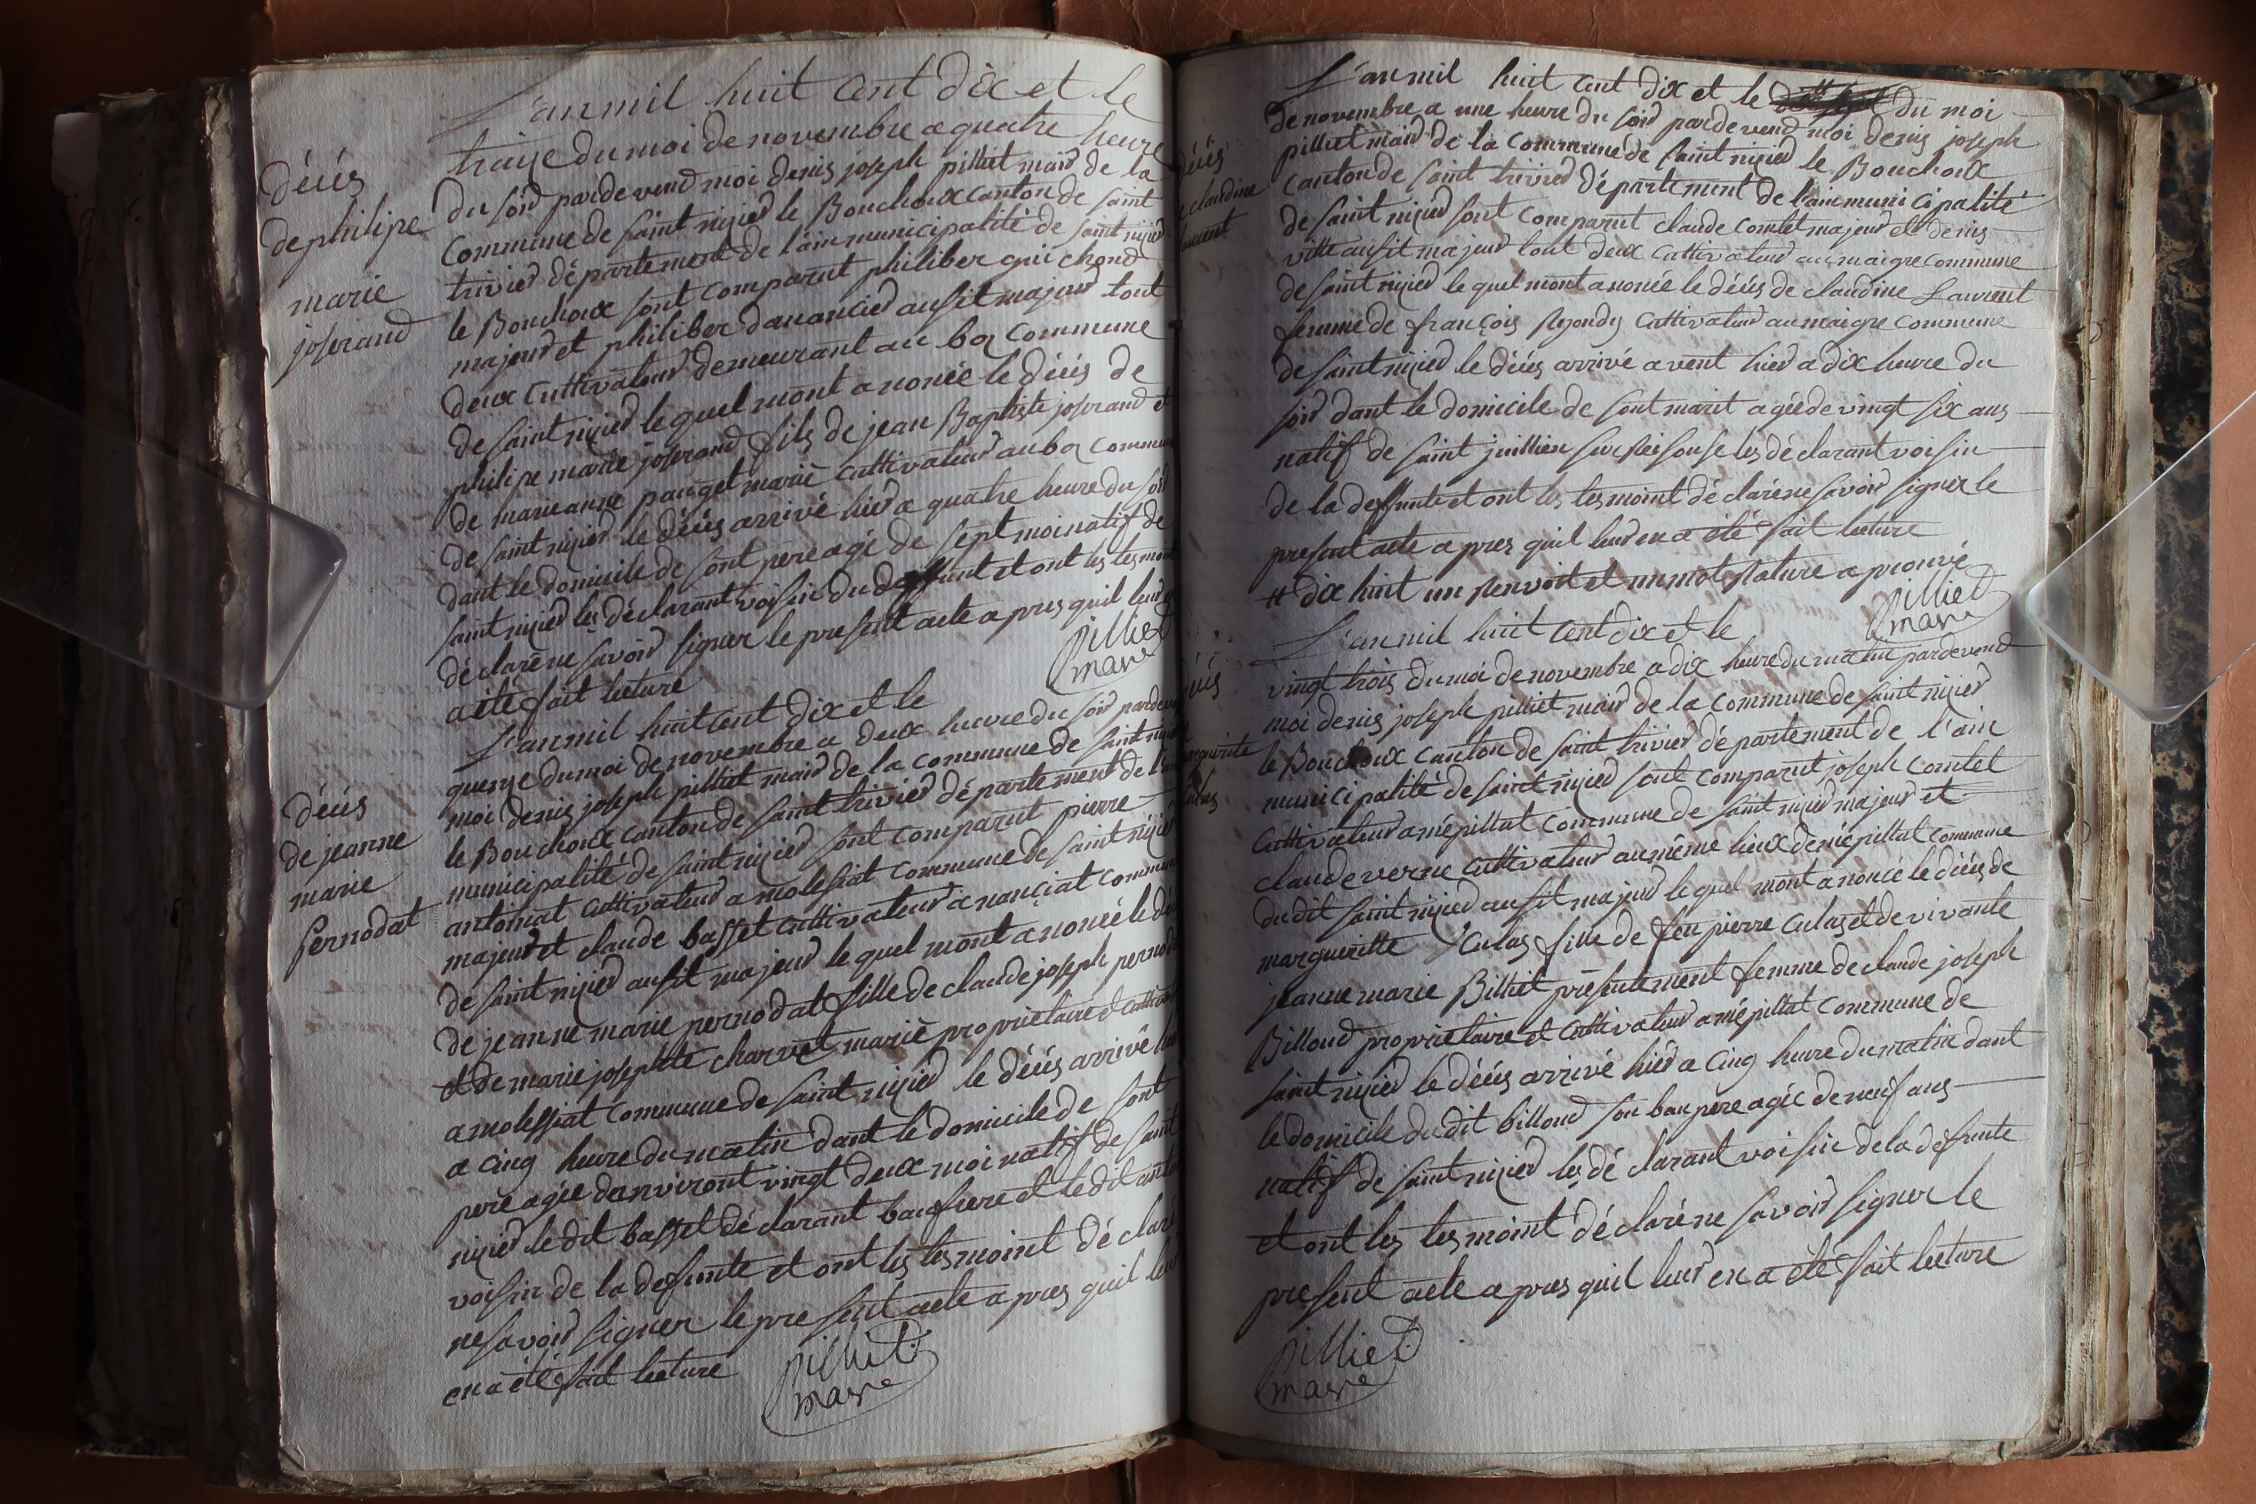 L'an mil huit cent dix et le
traize du moi de novembre a quatre heure
décés
de philipe
marie
joserand
du soir pardevend moi denis joseph pilliet mair de la
commune de saint nizier le Bouchoux canton de saint
trivier département de l'ain municipalité de saint nizier
le Bouchoux sont comparut philiber guichond
majeur et philiber danancier ausit majeur tout
deux cultivateur demeurant au commune
de saint nizier le quel mont anoncée le décés de
philipe marie joserand fils de jean Baptiste joserand et
de marieanne pauget marié cultivateur au commune
de saint nizier le décés arrivé hier a quatre heure du soir
dant le domicile de sont pere agé de sept moi natif de
saint nizier les déclarant voisin du deffunt et ont les tesmoint
déclaréne savoir signer le present acte apres quil leur
a été fait lecture
pilliet
maire
L'an mil huit cent dix et le
quenze du moi de novembre a deux heure du soir pardevend
décés
de jeanne
marie
pernodat
moi denis joseph pilliet mair de la commune de saint nizier
le Bouchoux canton de saint trivier département de l'ain
municipalité de saint nizier sont comparut pierre
antoinat cultivateur a molefiat commune de saint nizier
majeur et claude baffet cultivateur a nanciat commune
de saint nizier ausit majeur le quel mont anoncéé le décés
de jeanne marie pernodat fille de claude joseph pernodat
et de marie josephte charvet marié propriétaire et cultivateur
a moleffiat commune de saint nizier le décés arrivé hier
a cinq heure du matin dant le domicile de sont
pere agée danviront vingt deux moi natif de saint
nizier le dit baffet déclarant baufrere et ledit
voisin de la defunte et ont les tesmoint déclaré
ne savoir signer le present acte apres quil leur
en a été fait lecture
pilliet
maire
L'an mil huit cent dix et le # du moi
de novembre a une heure du soir pardevend moi denis joseph
décés
de claudine
laurent
pilliet mair de la commune de saint nizier le Bouchoux
canton de saint trivier département de l'ain municipalité
de saint nizier sont comparut claude comtet majeur et denis
ville ausit majeur tout deux cultivateur au maigre commune
de saint nizier le quel mont anonée le décés de claudine Laurent
femme de françois Rejondy cultivateur au maigre commune
de saint nizier le décés arrivé avent hier a dix heure du
soir dant le domicile de sont marit agée de vingt six ans
natif de saint juillien sur Reisouse les déclarant voisin
de la deffunte et ont les tesmoint déclaréne savoir signer le
present acte apres quil leur en a été fait lecture
# dix huit un renvoit et un mot rature aprouvé
pilliet
maire
L'an mil huit cent dix et le
décés
marguerite
culas
vingt trois du moi de novembre a dix heure du matin pardevend
moi denis joseph pilliet mair de la commune de saint nizier
le Bouchoux canton de saint trivier département de l'ain
municipalité de saint nizier sont comparut joseph comtet
cultivateur a mépillat commune de saint nizier majeur et
claude verne cultivateur au même lieux de mépillat commune
du dit saint nizier ausit majeur le quel mont anoncé le décés de
margueritte culas fille de feu pierre culas et de vivante
jeanne marie Billiet présentement femme de claude joseph
Billoud propriétaire et cultivateur a mépillat commune de
saint nizier le décés arrivé hier a cinq heure du matin dant
le domicile du dit billoud son bau pere agée de neuf ans
natif de saint nizier les déclarant voisin de la defunte
et ont les tesmoint déclaré ne savoir signer le
present acte apres quil leur en a été fait lecture
pilliet
maire